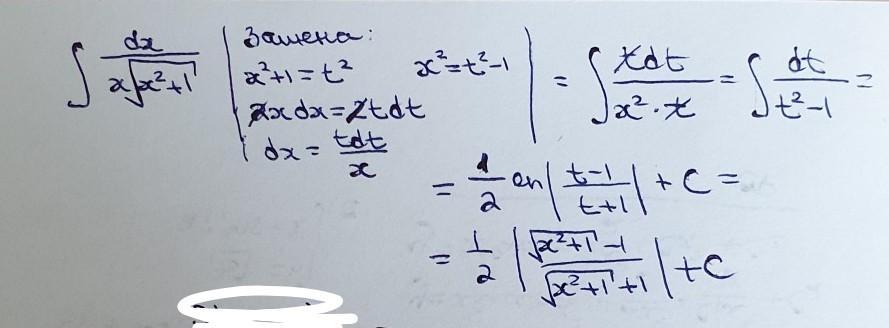 ∫ dx / (x√(x²+1)) | Замена: x²+1 = t² x² = t²-1 2xdx = 2tdt dx = tdt / x | = ∫ tdt / (x²·t) = ∫ dt / (t²-1) =
= 1/2 ln | (t-1) / (t+1) | + C =
= 1/2 | (√(x²+1) -1) / (√(x²+1) +1) | + C